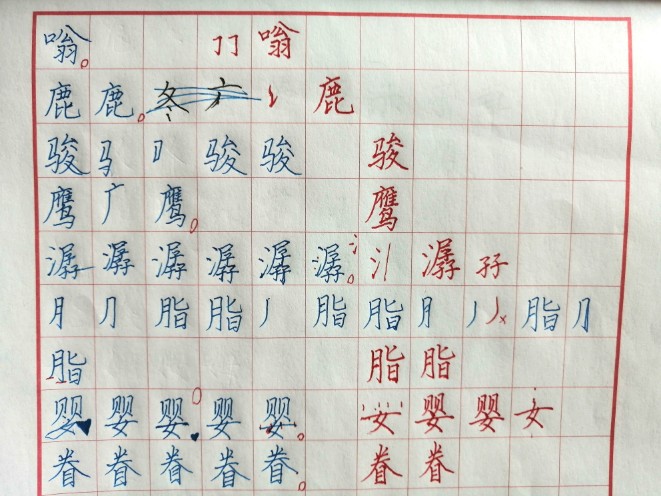 嗡 嗡
鹿 鹿 冬 鹿
骏 马 骏 骏 骏
鹰 广 鹰 鹰
潺 潺 潺 潺 潺 潺 氵 潺 孖
月 脂 脂 脂 脂 脂
脂 脂 脂
婴 婴 婴 婴 婴 女 婴 婴 女
眷 眷 眷 眷 眷 眷 眷